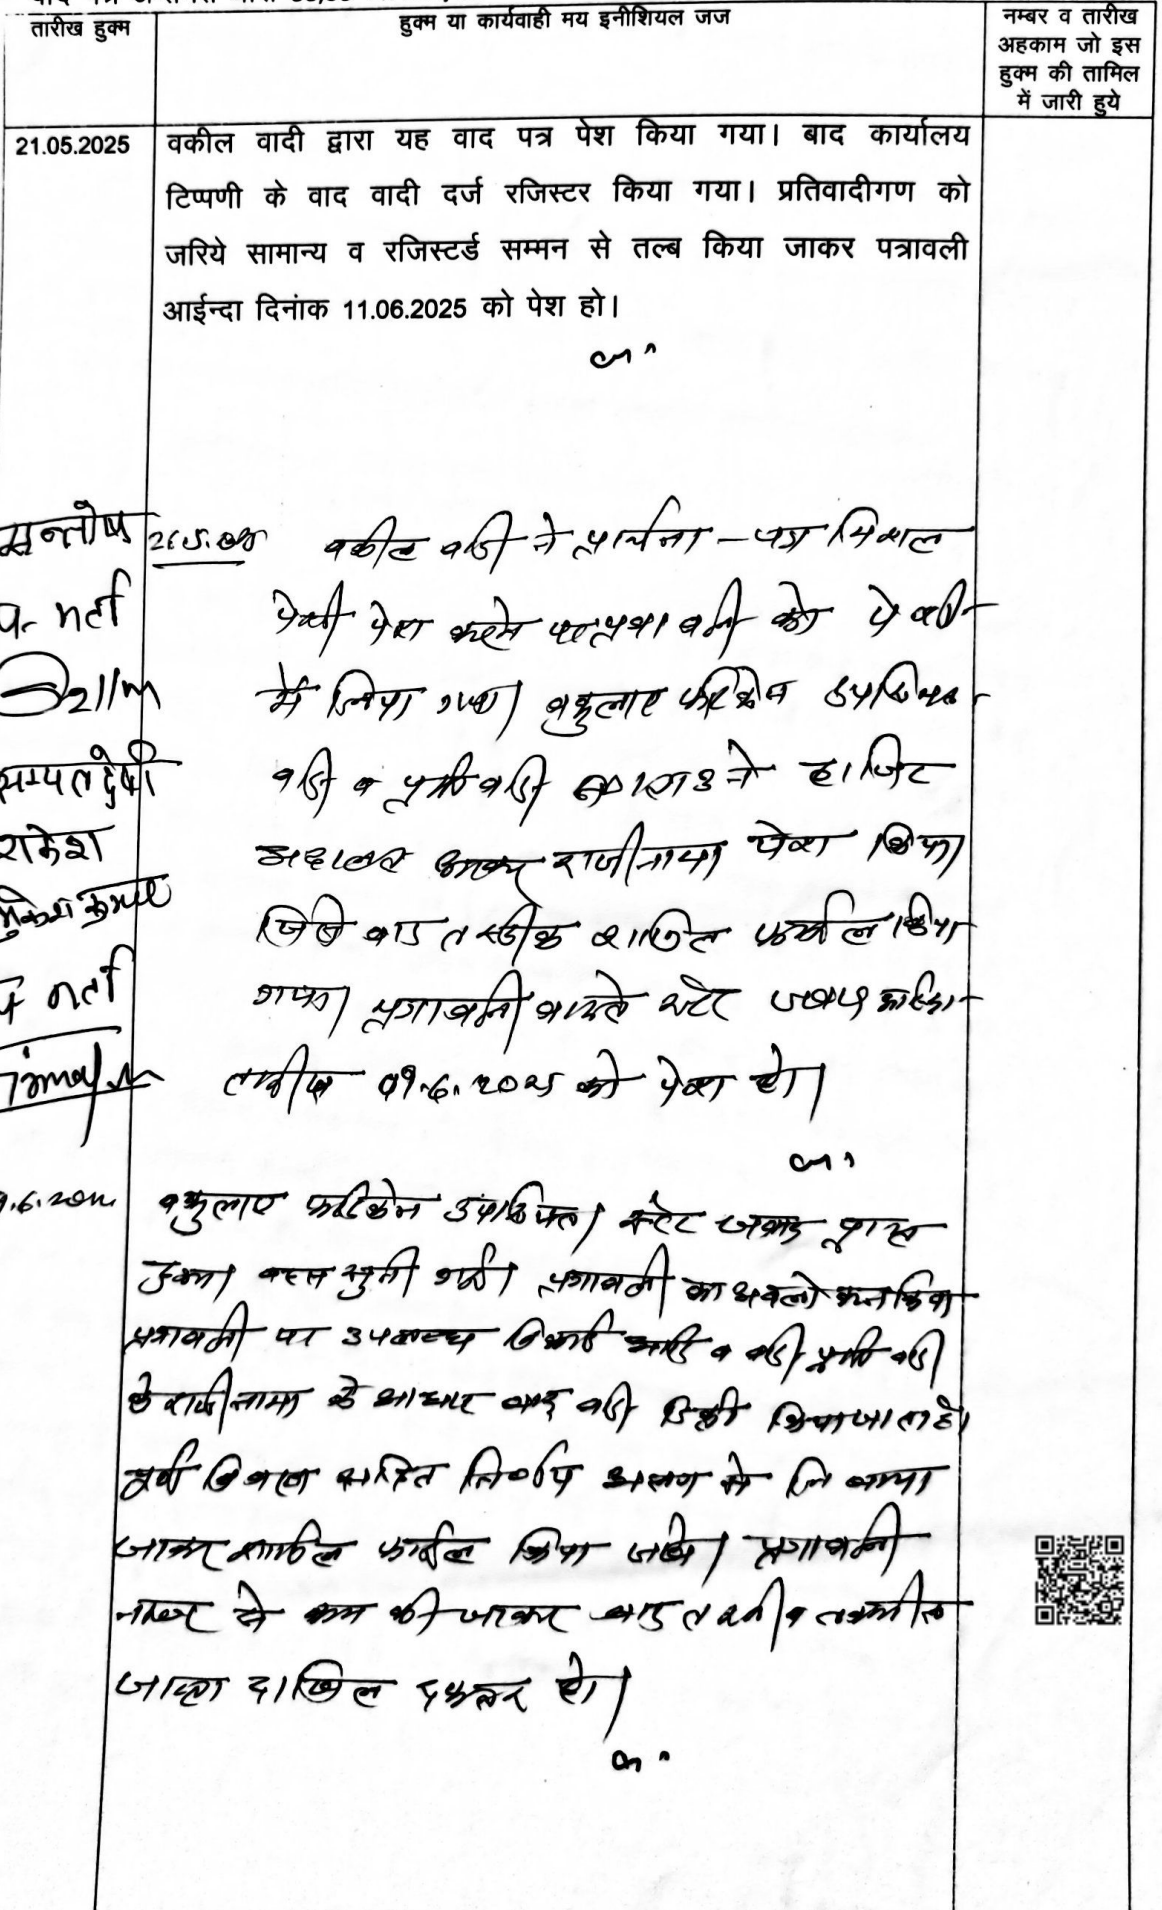 तारीख हुक्म
हुक्म या कार्यवाही मय इनीशियल जज
नम्बर व तारीख
अहकाम जो इस
हुक्म की तामिल
में जारी हुये
21.05.2025
वकील वादी द्वारा यह वाद पत्र पेश किया गया। बाद कार्यालय
टिप्पणी के वाद वादी दर्ज रजिस्टर किया गया। प्रतिवादीगण को
जरिये सामान्य व रजिस्टर्ड सम्मन से तल्ब किया जाकर पत्रावली
आईन्दा दिनांक 11.06.2025 को पेश हो।
सन्तोष
वकील वादी ने प्रार्थना-पत्र मिशल
पेशी पेश करने पर पत्रावली को पेशी
में लिया गया। वकुलाए फरिकेन उपस्थित
वादी व प्रतिवादी ने हाजिर
अदालत आकर राजीनामा पेश किया
जिसे बाद तस्दीक शामिल फाईल किया
गया। पत्रावली वास्ते स्टेट जवाब
तारीख 09.6.2025 को पेश हो।
सम्पत देवी
राकेश
मुकेश कुमार
वकुलाए फरिकेन उपस्थित। स्टेट जवाब प्राप्त
हुआ। बहस सुनी गई। पत्रावली का अवलोकन किया
पत्रावली पर उपलब्ध रिकार्ड आदि व वादी प्रतिवादी
के राजीनामा के आधार वाद वादी डिक्री किया जाता है।
पूर्ण विवरण सहित निर्णय अलग से लिखाया
जाकर शामिल फाईल किया जावे। पत्रावली
नम्बर से कम की जाकर बाद तरतीब तकमील
जाब्ता दाखिल दफ्तर हो।